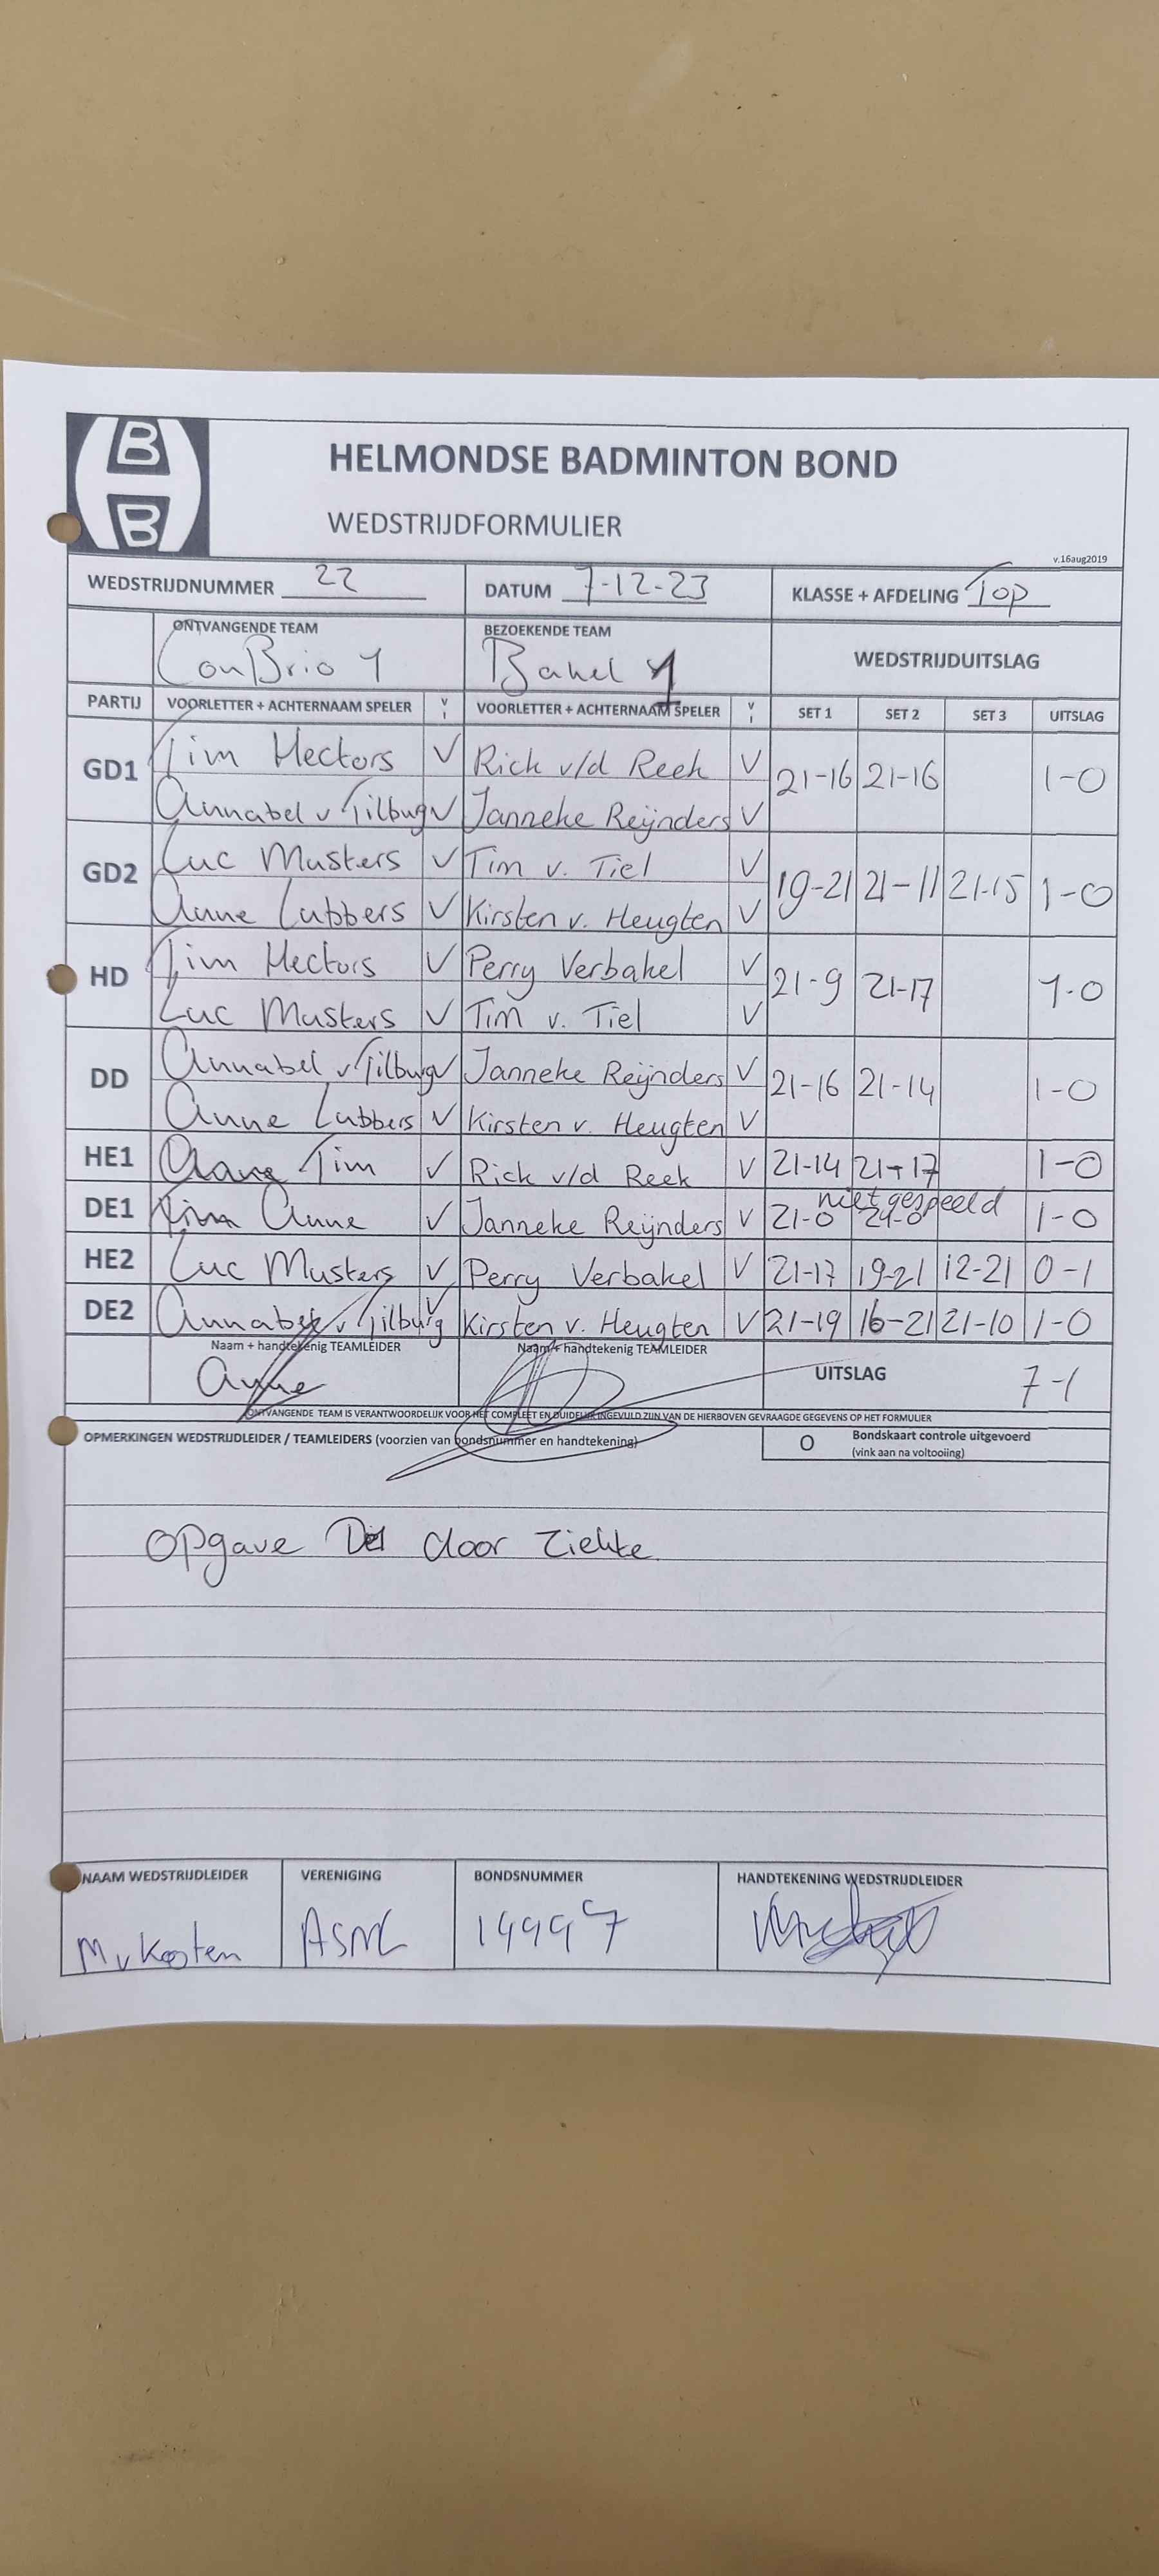 HELMONDSE BADMINTON BOND
WEDSTRIJDFORMULIER
v.16aug2019
WEDSTRIJDNUMMER 22 DATUM 7-12-23 KLASSE + AFDELING Top
ONTVANGENDE TEAM BEZOEKENDE TEAM WEDSTRIJDUITSLAG
ConBrio 1 Bakel 1
PARTIJ VOORLETTER + ACHTERNAAM SPELER V I VOORLETTER + ACHTERNAAM SPELER V I SET 1 SET 2 SET 3 UITSLAG
GD1 Tim Hectors V Rick v/d Reek V 21-16 21-16 1-0
Annabel v Tilburg V Janneke Reijnders V
GD2 Luc Musters V Tim v. Tiel V 19-21 21-11 21-15 1-0
Anne Lubbers V Kirsten v. Heugten V
HD Tim Hectors V Perry Verbakel V 21-9 21-17 1-0
Luc Musters V Tim v. Tiel V
DD Annabel v Tilburg V Janneke Reijnders V 21-16 21-14 1-0
Anne Lubbers V Kirsten v. Heugten V
HE1 Tim V Rick v/d Reek V 21-14 21-17 1-0
DE1 Anne V Janneke Reijnders V 21-0 21-0 niet gespeeld 1-0
HE2 Luc Musters V Perry Verbakel V 21-17 19-21 12-21 0-1
DE2 Annabel v Tilburg V Kirsten v. Heugten V 21-19 16-21 21-10 1-0
Naam + handtekenig TEAMLEIDER Naam + handtekenig TEAMLEIDER UITSLAG 7-1
Anne
ONTVANGENDE TEAM IS VERANTWOORDELIJK VOOR HET COMPLEET EN DUIDELIJK INGEVULD ZIJN VAN DE HIERBOVEN GEVRAAGDE GEGEVENS OP HET FORMULIER
OPMERKINGEN WEDSTRIJDLEIDER / TEAMLEIDERS (voorzien van bondsnummer en handtekening) O Bondskaart controle uitgevoerd
(vink aan na voltooiing)
Opgave door ziekte
NAAM WEDSTRIJDLEIDER VERENIGING BONDSNUMMER HANDTEKENING WEDSTRIJDLEIDER
M v Kooten